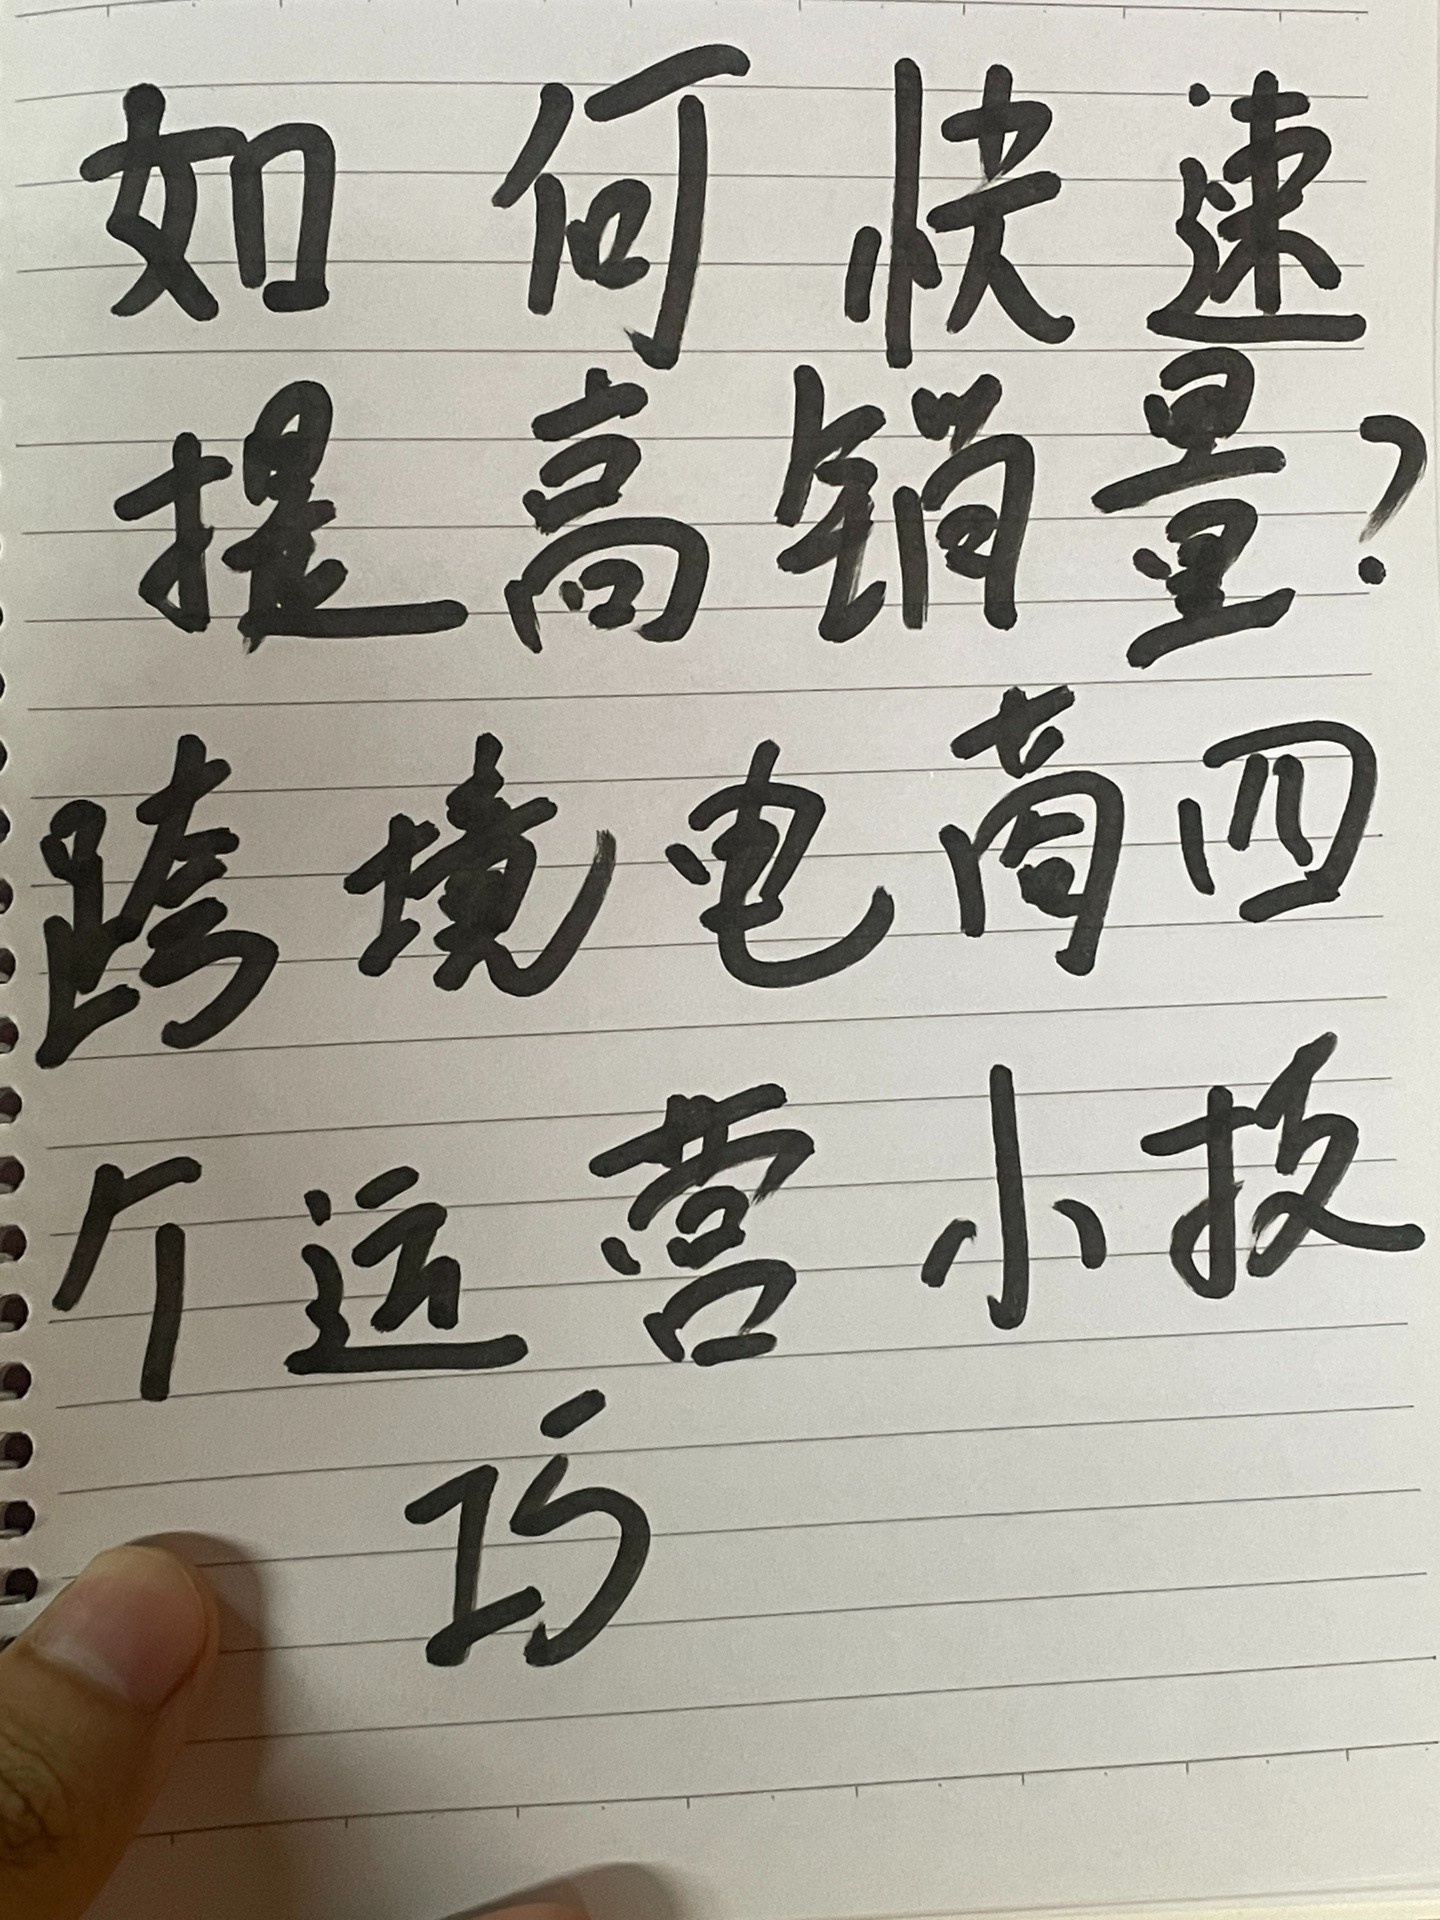 如何快速
提高销量?
跨境电商四
个运营小技
巧